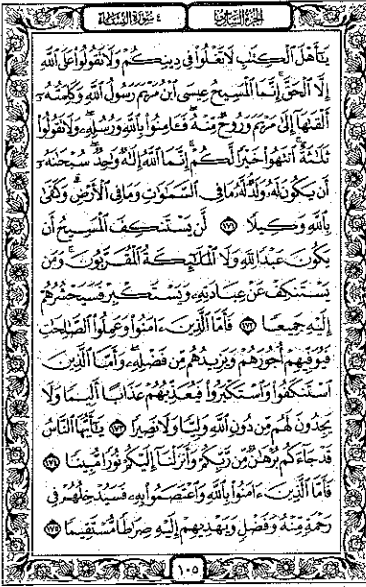 الجزء السادس
٤ سورة النساء
يَٰٓأَهْلَ ٱلْكِتَٰبِ لَا تَغْلُوا۟ فِى دِينِكُمْ وَلَا تَقُولُوا۟ عَلَى ٱللَّهِ
إِلَّا ٱلْحَقَّ ۚ إِنَّمَا ٱلْمَسِيحُ عِيسَى ٱبْنُ مَرْيَمَ رَسُولُ ٱللَّهِ وَكَلِمَتُهُۥٓ
أَلْقَىٰهَآ إِلَىٰ مَرْيَمَ وَرُوحٌ مِّنْهُ ۖ فَـَٔامِنُوا۟ بِٱللَّهِ وَرُسُلِهِۦ ۖ وَلَا تَقُولُوا۟
ثَلَٰثَةٌ ۚ ٱنتَهُوا۟ خَيْرًا لَّكُمْ ۚ إِنَّمَا ٱللَّهُ إِلَٰهٌ وَٰحِدٌ ۖ سُبْحَٰنَهُۥٓ
أَن يَكُونَ لَهُۥ وَلَدٌ ۘ لَّهُۥ مَا فِى ٱلسَّمَٰوَٰتِ وَمَا فِى ٱلْأَرْضِ ۗ وَكَفَىٰ
بِٱللَّهِ وَكِيلًا ﴿١٧١﴾ لَّن يَسْتَنكِفَ ٱلْمَسِيحُ أَن
يَكُونَ عَبْدًا لِّلَّهِ وَلَا ٱلْمَلَٰٓئِكَةُ ٱلْمُقَرَّبُونَ ۚ وَمَن
يَسْتَنكِفْ عَنْ عِبَادَتِهِۦ وَيَسْتَكْبِرْ فَسَيَحْشُرُهُمْ
إِلَيْهِ جَمِيعًا ﴿١٧٢﴾ فَأَمَّا ٱلَّذِينَ ءَامَنُوا۟ وَعَمِلُوا۟ ٱلصَّٰلِحَٰتِ
فَيُوَفِّيهِمْ أُجُورَهُمْ وَيَزِيدُهُم مِّن فَضْلِهِۦ ۖ وَأَمَّا ٱلَّذِينَ
ٱسْتَنكَفُوا۟ وَٱسْتَكْبَرُوا۟ فَيُعَذِّبُهُمْ عَذَابًا أَلِيمًا وَلَا
يَجِدُونَ لَهُم مِّن دُونِ ٱللَّهِ وَلِيًّا وَلَا نَصِيرًا ﴿١٧٣﴾ يَٰٓأَيُّهَا ٱلنَّاسُ
قَدْ جَآءَكُم بُرْهَٰنٌ مِّن رَّبِّكُمْ وَأَنزَلْنَآ إِلَيْكُمْ نُورًا مُّبِينًا ﴿١٧٤﴾
فَأَمَّا ٱلَّذِينَ ءَامَنُوا۟ بِٱللَّهِ وَٱعْتَصَمُوا۟ بِهِۦ فَسَيُدْخِلُهُمْ فِى
رَحْمَةٍ مِّنْهُ وَفَضْلٍ وَيَهْدِيهِمْ إِلَيْهِ صِرَٰطًا مُّسْتَقِيمًا ﴿١٧٥﴾
١٠٥